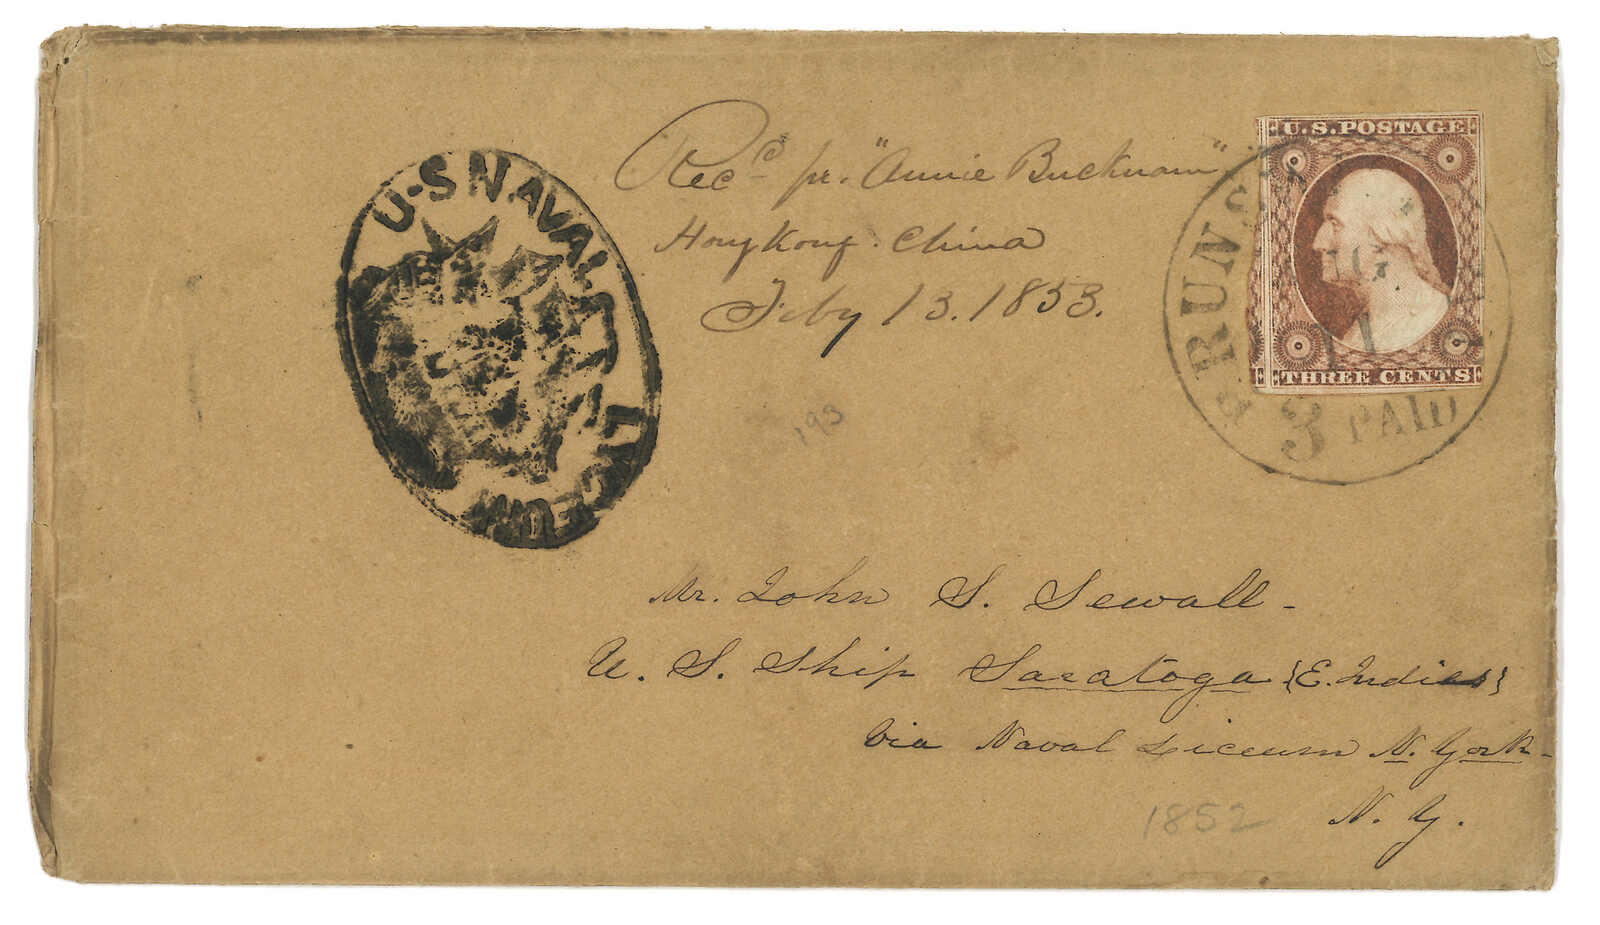 U·S NAVAL LYCEUM
Recd pr. "Annie Bucknam"
Hong Kong. China
Feby 13. 1853.
U.S. POSTAGE
THREE CENTS
11
3 PAID
193
Mr. John S. Sewall -
U. S. Ship Saratoga {E. Indies}
Via Naval Liceum N. York -
N. Y.
1852